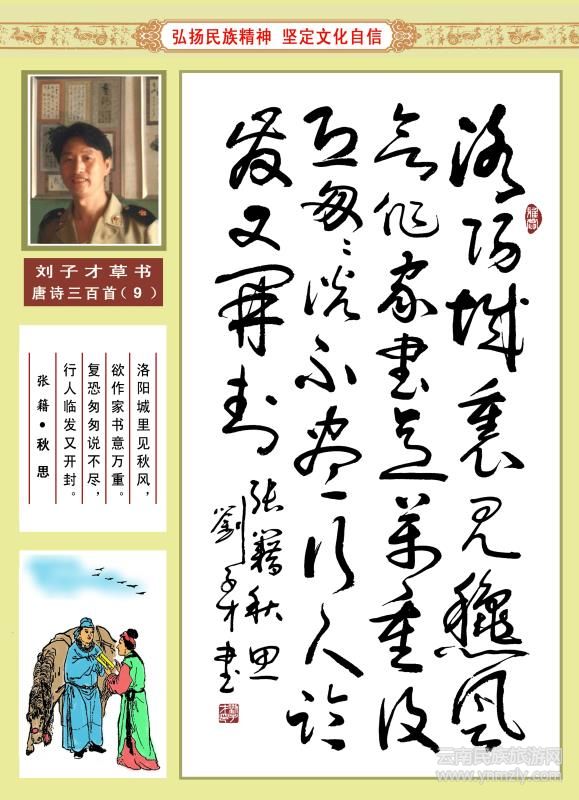 弘扬民族精神 坚定文化自信
刘子才草书
唐诗三百首（9）
洛阳城里见秋风，
欲作家书意万重。
复恐匆匆说不尽，
行人临发又开封。
张籍·秋思
洛陽城裏見龝風
欲作家書意萬重復
恐匆〻說不盡行人臨
發又開封
張籍秋思
劉子才書
云南民族旅游网
www.ynmzly.com